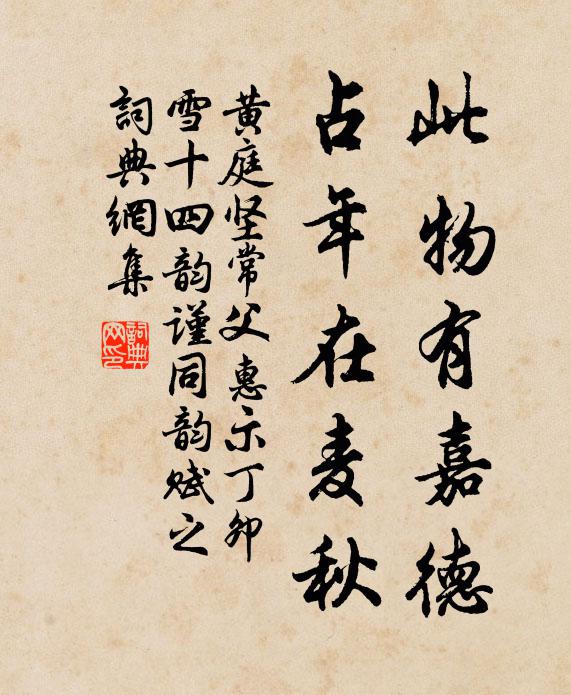 此物有嘉德
占年在麦秋
黄庭坚常父惠示丁卯
雪十四韵谨同韵赋之
詞典網集
詞典
网印